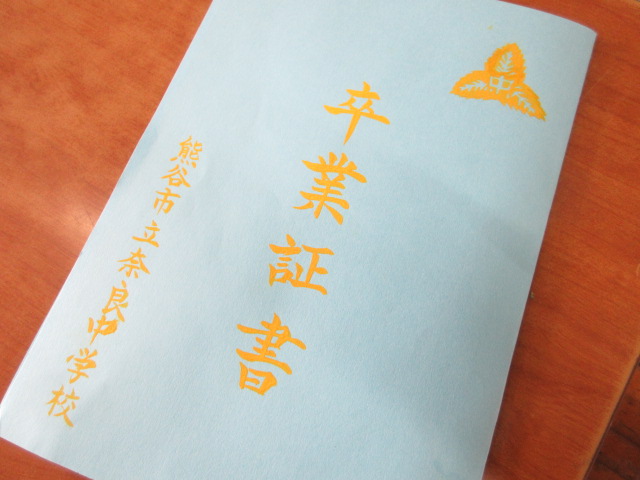 中
卒業証書
熊谷市立奈良中学校